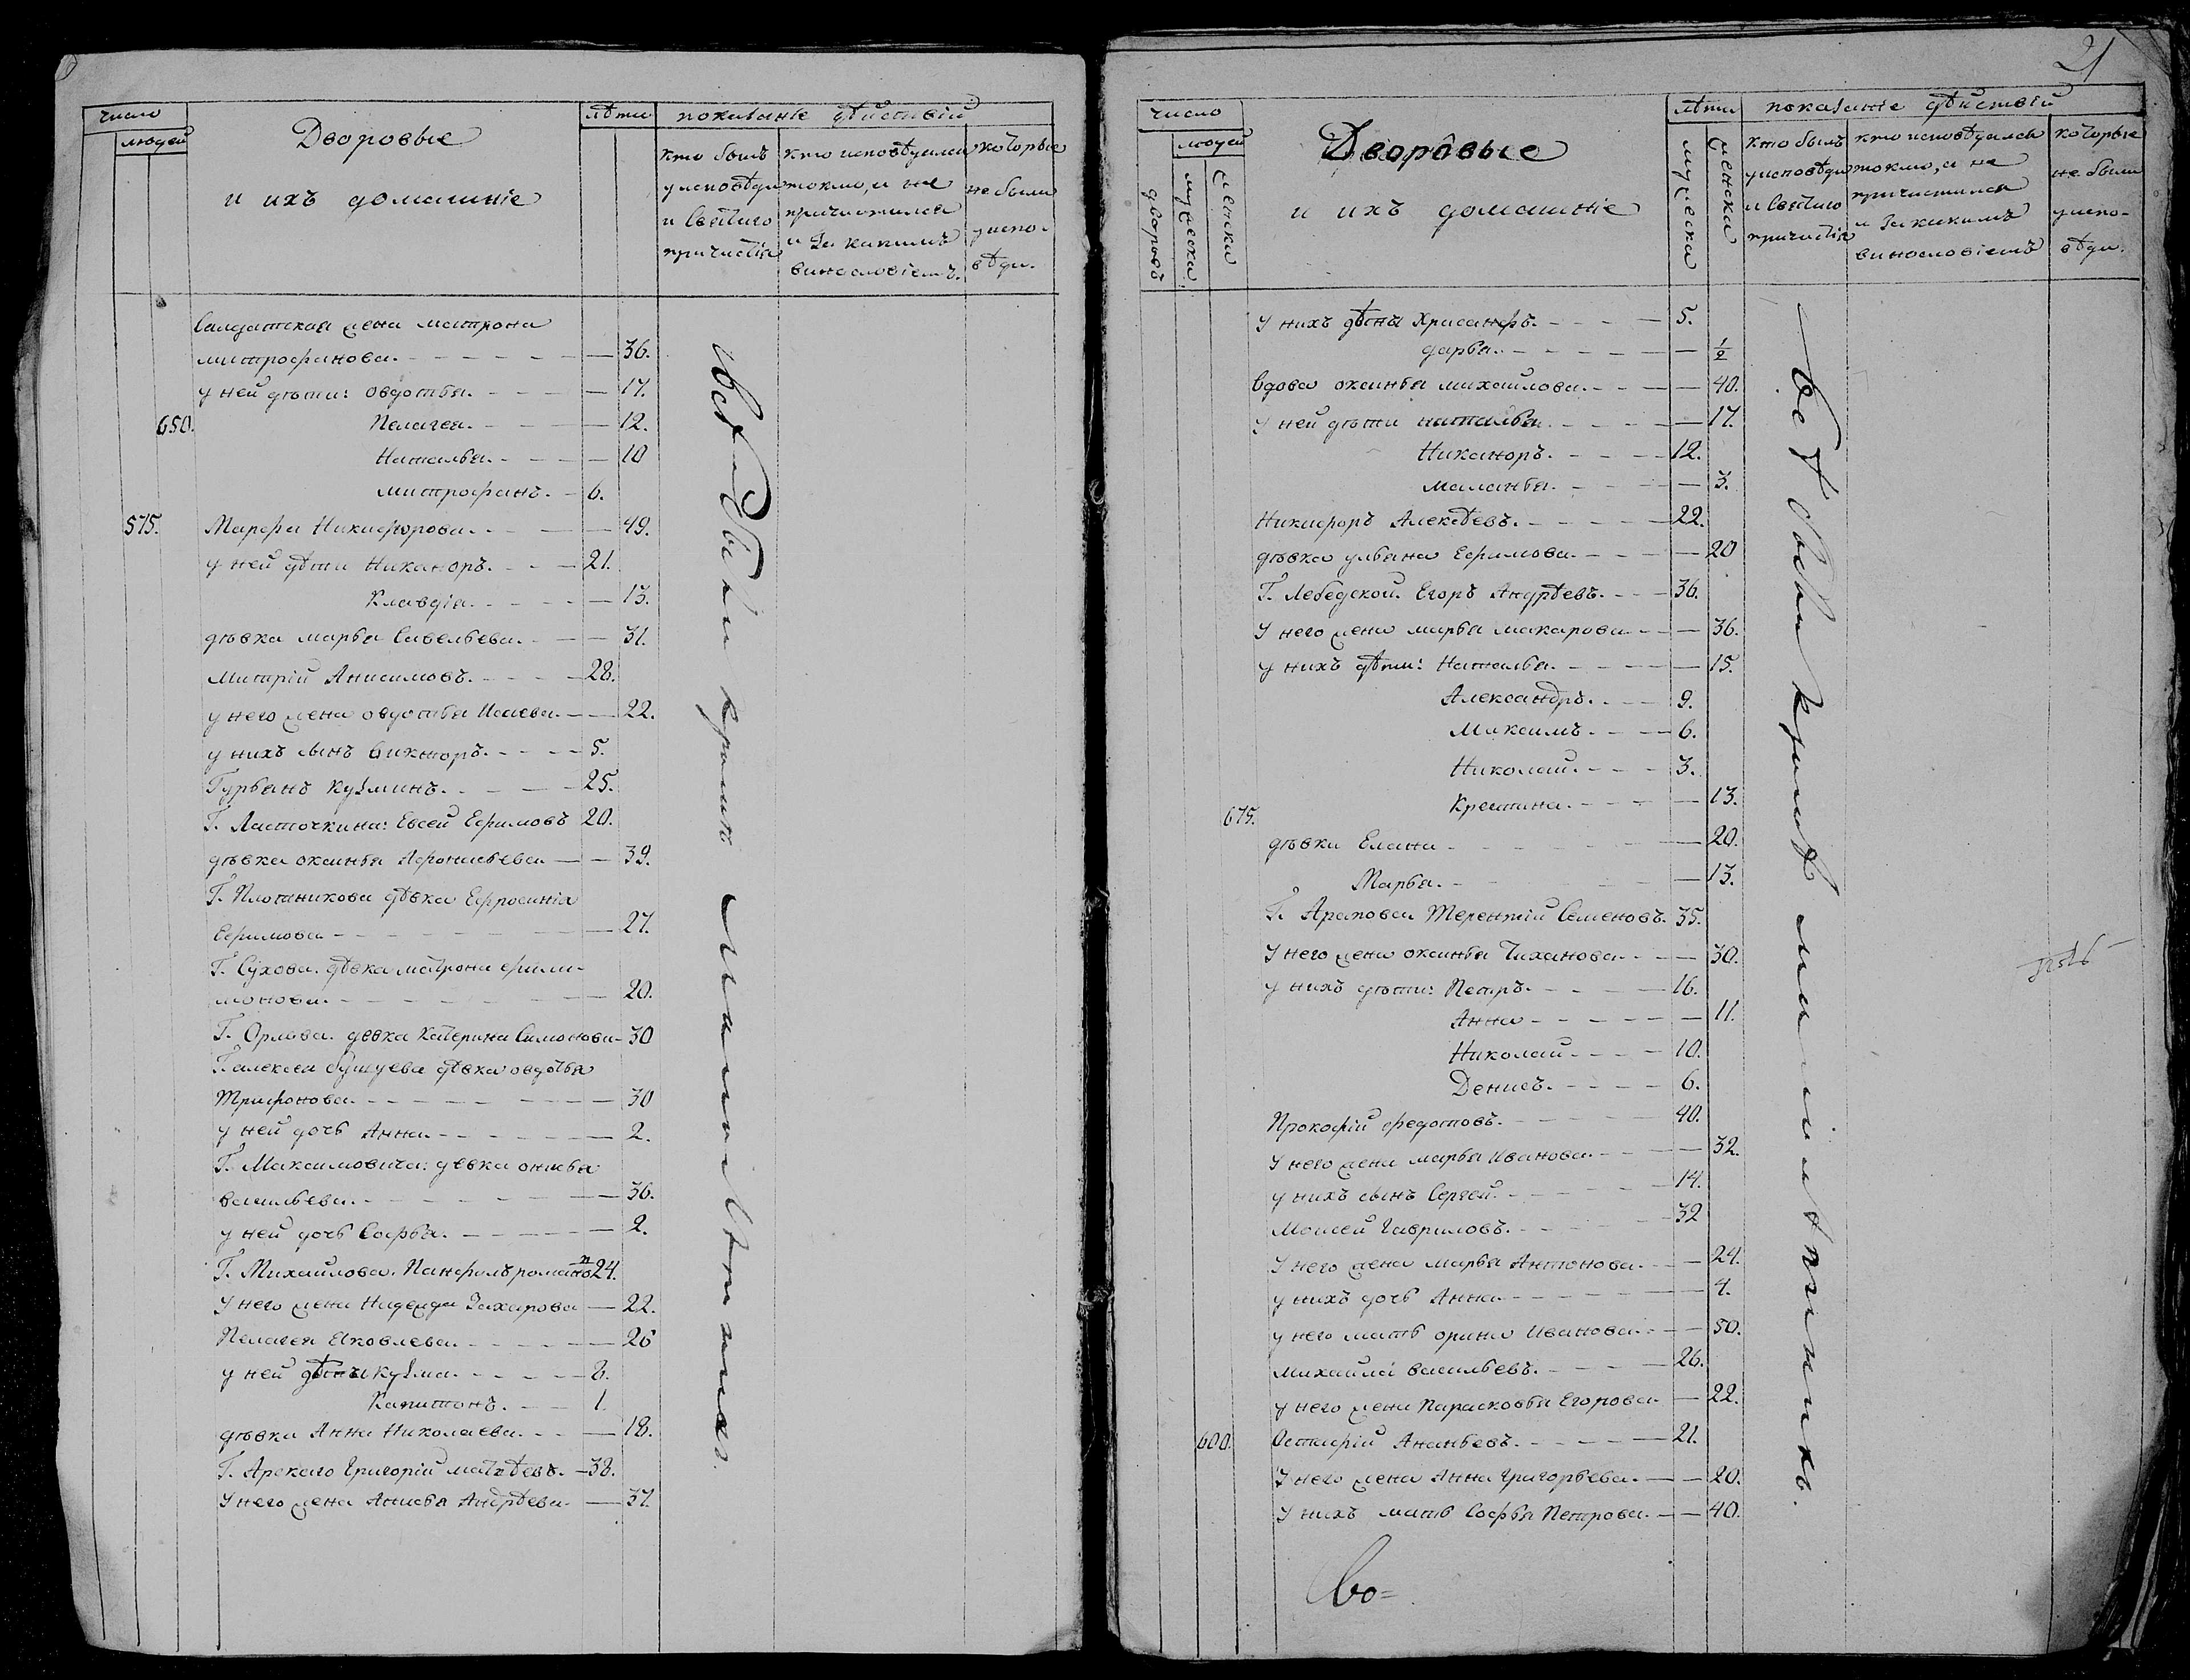 число
людей
Дворовые
и ихъ домашніе
лѣта
показаніе дѣйствій
кто былъ
у исповѣди
и Святаго
причастія
кто исповѣдался
токмо, а не
причастился
и за какимъ
винословіемъ.
которые
не были
у испо-
вѣди.
Салдатская жена матрона
митрофанова. — 36.
у ней дѣти: овдотья. — 17.
650. Пелагея. — 12.
Наталья. — 10
митрофанъ. — 6.
575. Марфа Никифорова. — 49.
у ней дѣти Никаноръ. — 21.
Клавдія. — 13.
дѣвка марья Савельева. — 31.
митрій Анисимовъ. — 28.
у него жена овдотья Исаева. — 22.
у нихъ сынъ викторъ. — 5.
Гурьянъ Кузминъ. — 25.
Г. Ласточкина: Евсей Ефимовъ 20.
дѣвка оксинья Афонасьева — 39.
Г. Плотникова дѣвка Ефросинія
Ефимова — 27.
Г. Сухова. дѣвка матрона фили-
монова. — 20.
Г. Орлова. девка Катерина Симонова — 30
Г. алексея дѣвка овдотья
Трифонова. — 30
у ней дочь Анна — 2.
Г. Максимовича: девка онисья
васильева. — 36.
у ней дочь Софья. — 2.
Г. Михайлова. Панфилъ романовъ 24.
У него жена Надежда Захарова — 22.
Пелагея Яковлева. — 26
у ней дѣти кузма. — 8.
Капитонъ. — 1.
дѣвка Анна Николаева. — 18.
Г. Арскаго Григорій матвѣевъ. — 38.
У него жена Анисья Андрѣева — 37.
всѣ были кромѣ малолѣтныхъ.
21
число
дворовъ
людей
мужеска.
женска
Дворовые
и ихъ домашніе
лѣта
мужеска
женска
показаніе дѣйствій
кто былъ
у исповѣди
и Святаго
причастія
кто исповѣдался
токмо, а не
причастился
и за какимъ
винословіемъ
которые
не были
у испо-
вѣди.
у нихъ дѣти Хрисанфъ. — 5.
дарья. — 1/2
вдова оксинья михайлова. — 40.
у ней дѣти наталья. — 17.
Никаноръ. — 12.
маланья. — 3.
Никифоръ Алексѣевъ. — 22.
дѣвка ульяна Ефимова. — 20
Г. Лебедской. Егоръ Андрѣевъ. — 36.
У него жена марья макарова — 36.
у нихъ дѣти: Наталья. — 15.
Александръ. — 9.
Максимъ. — 6.
Николай. — 3.
675. Крестина. — 13.
дѣвки Елена — 20.
Марья. — 13.
Г. Арапова Терентій Семеновъ. 35.
У него жена оксинья Тиханова — 30.
у нихъ дѣти: Петръ. — 16.
Анна — 11.
Николай — 10.
Денисъ. — 6.
Прокофій федотовъ. — 40.
У него жена марья Иванова. — 32.
у нихъ сынъ Сергей. — 14.
Моисей Гавриловъ. — 32
У него жена марья Антонова. — 24.
у нихъ дочь Анна — 4.
у него мать орина Иванова. — 50.
михайла васильевъ. — 26.
у него жена Парасковья Егорова. — 22.
600. Остафій Ананьевъ. — 21.
У него жена Анна Григорьева. — 20.
У нихъ мать Софья Петрова. — 40.
всѣ были кромѣ малолѣтныхъ.
Во=